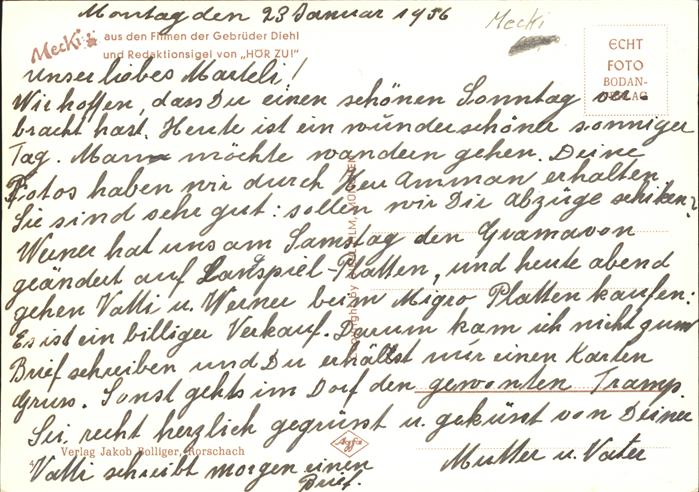 Montag den 23 Januar 1956
Mecki
Mecki aus den Filmen der Gebrüder Diehl
und Redaktionsigel von „HÖR ZU!"
ECHT
FOTO
BODAN-
Unser liebes Marteli!
Wir hoffen, dass Du einen schönen Sonntag ver-
bracht hast. Heute ist ein wunderschöner sonniger
Tag. Man möchte wandern gehen. Deine
Fotos haben wir durch Herr Amman erhalten.
Sie sind sehr gut: sollen wir Dir Abzüge schiken?
Werner hat uns am Samstag den Gramavon
geändert auf Lanspiel-Platten, und heute abend
gehen Vatti u. Werner beim Migro Platten kaufen.
Es ist ein billiger Verkauf. Darum kam ich nicht zum
Brief schreiben und Du erhälst nur einen Karten
Gruss. Sonst gehts im Dorf den gewonten Tramp.
Sei recht herzlich gegrüsst u. geküsst von Deiner
Mutter u. Vater
Vatti schreibt morgen einen
Brief.
Verlag Jakob Bolliger, Rorschach
Agfa
Copyright By